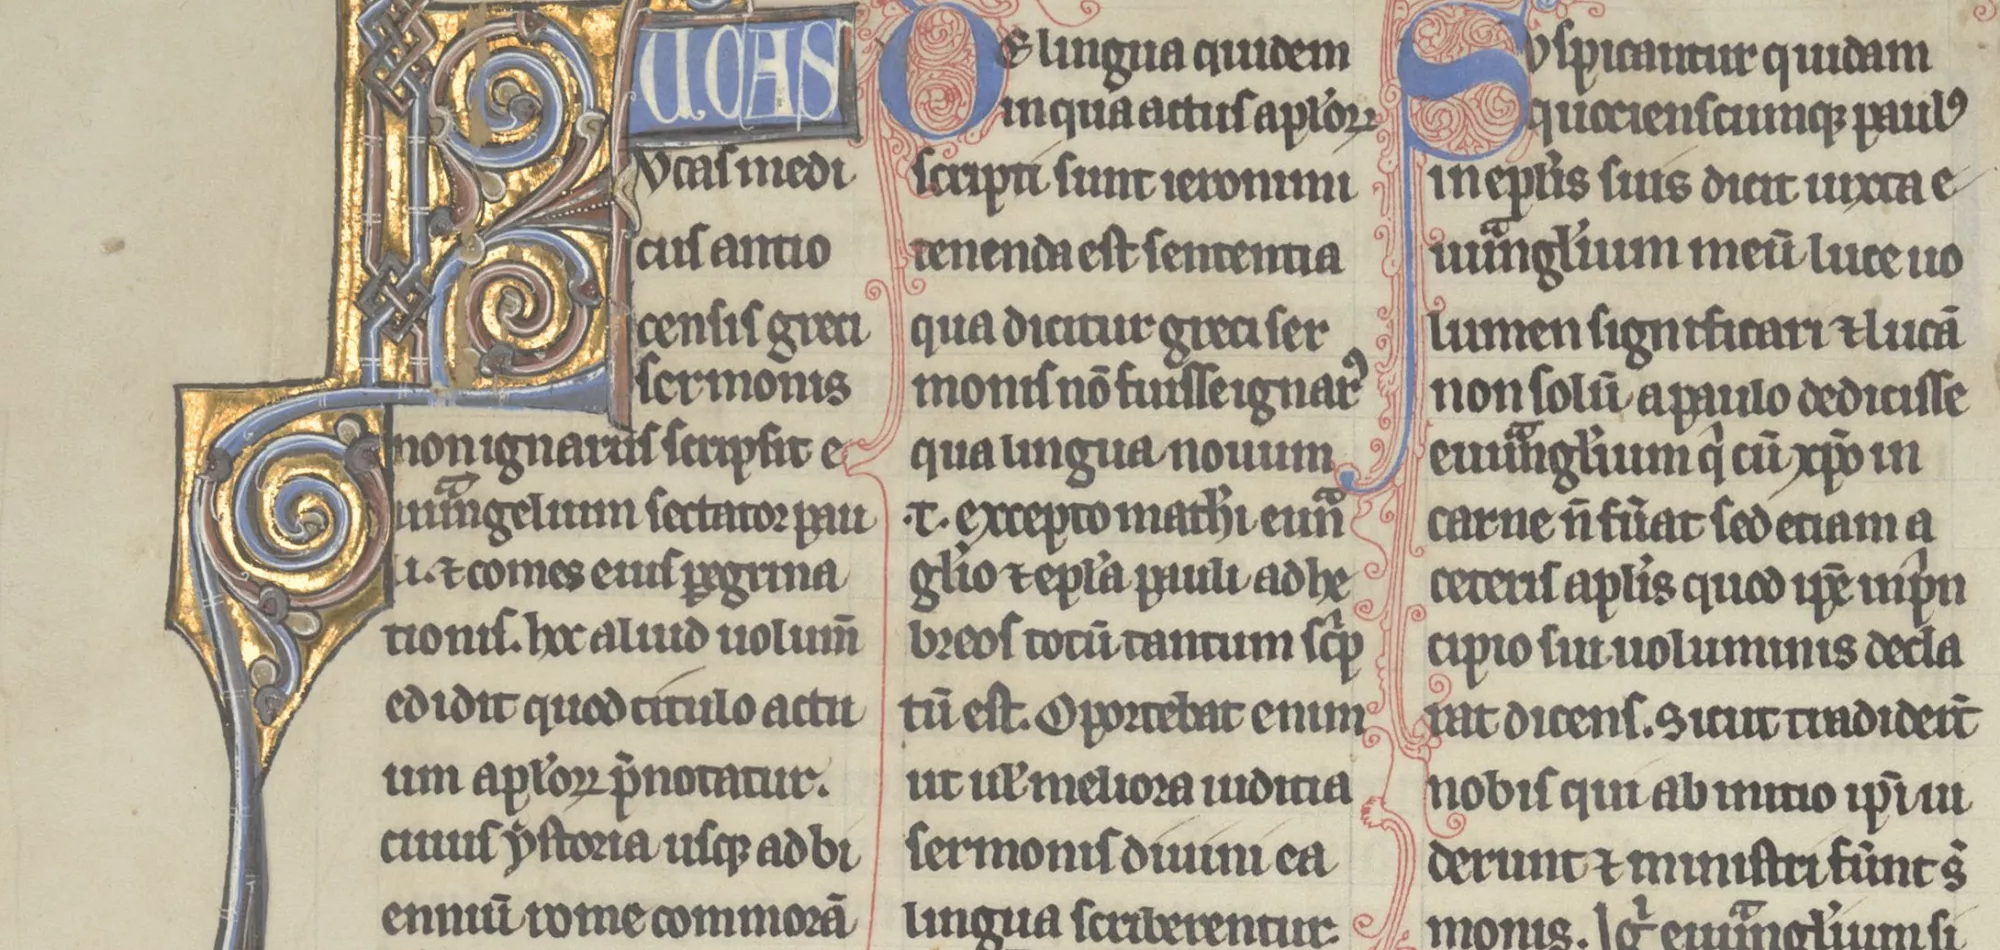 LUCAS
Vcas medi
cus antio
censis greci
sermonis
non ignarus scripsit e
uuangelium sectator pau
li. ⁊ comes eius peregrina
tionis. hoc aliud uolum̄
edidit quod titulo actu
um apl'oꝝ p̄notatur.
cuius ẏstoria usqꝫ ad bi
enniū rome commorā
De lingua quidem
in qua actus apl'oꝝ
scripti sunt ieronimi
tenenda est sententia
qua dicitur greci ser
monis nō fuisse ignarꝰ
qua lingua nouum
.t. excepto mathi euu̅a
gl'io ⁊ epl'a pauli ad he
breos totū tantum sc'p
tū est. Oportebat enim
ut ul' meliora iuditia
sermonis diuini ea
lingua scriberentur
Suspicantur quidam
quotienscumqꝫ paulꝰ
in epl'is suis dicit iuxta e
uuangl'ium meū luce uo
lumen significari ⁊ lucā
non solū a paulo dedicisse
euuangl'ium q' cū xp̄o in
carne n̄ fu̅at sed etiam a
ceteris apl'is quod ip̄e in p'n
cipio sui uoluminis decla
rat dicens. Sicut tradider̄t
nobis qui ab initio ip̄i ui
derunt ⁊ ministri fu̅nt s̄
monis. Ig' euuangl'ium si